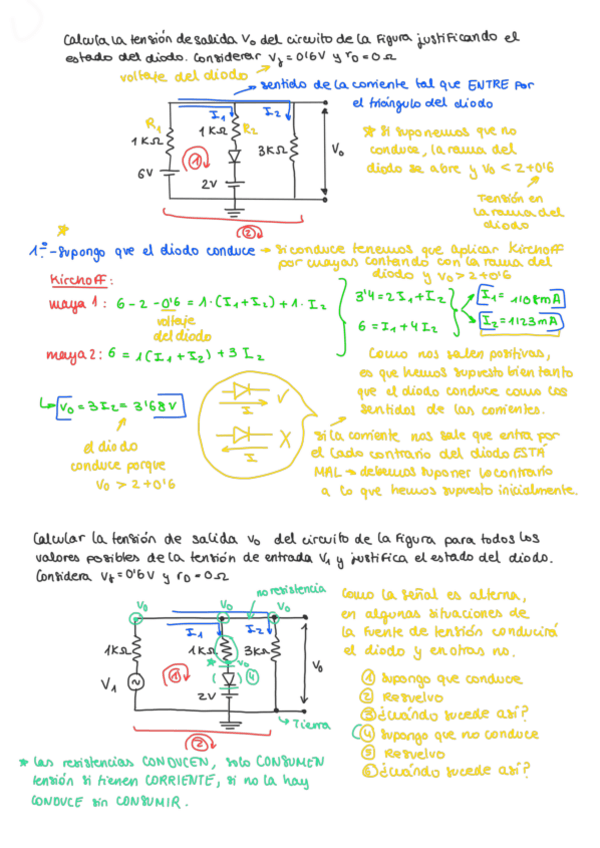 Calcula la tensión de salida Vo del circuito de la figura justificando el
estado del diodo. Considerar Vγ = 0'6V y rD = 0Ω
voltaje del diodo
sentido de la corriente tal que ENTRE por
el triángulo del diodo
I1
I2
R1
1KΩ
1KΩ
R2
3KΩ
Vo
6V
2V
1
2
* Si suponemos que no
conduce, la rama del
diodo se abre y Vo < 2+0'6
Tensión en
la rama del
diodo
*
1º- Supongo que el diodo conduce → Si conduce tenemos que aplicar Kirchoff
por mayas contando con la rama del
diodo y Vo > 2+0'6
Kirchoff:
maya 1: 6 - 2 - 0'6 = 1·(I1+I2) + 1·I2
voltaje
del diodo
maya 2: 6 = 1(I1+I2) + 3I2
3'4 = 2I1 + I2
6 = I1 + 4I2
I1 = 1'08mA
I2 = 1'23mA
Vo = 3I2 = 3'68V
el diodo
conduce porque
Vo > 2+0'6
I
✓
I
X
Como nos salen positivas,
es que hemos supuesto bien tanto
que el diodo conduce como los
sentidos de las corrientes.
Si la corriente nos sale que entra por
el lado contrario del diodo ESTÁ
MAL → debemos suponer lo contrario
a lo que hemos supuesto inicialmente.
Calcular la tensión de salida Vo del circuito de la figura para todos los
valores posibles de la tensión de entrada V1 y justifica el estado del diodo.
Considera Vγ = 0'6V y rD = 0Ω
no resistencia
Vo
Vo
Vo
I1
I2
1KΩ
1KΩ
3KΩ
Vo
* Vo
V1
1
4
2V
Tierra
2
Como la señal es alterna,
en algunas situaciones de
la fuente de tensión conducirá
el diodo y en otras no.
1 Supongo que conduce
2 Resuelvo
3 ¿cuándo sucede así?
4 Supongo que no conduce
5 Resuelvo
6 ¿cuándo sucede así?
* Las resistencias CONDUCEN, solo CONSUMEN
tensión si tienen CORRIENTE, si no la hay
CONDUCE sin CONSUMIR.